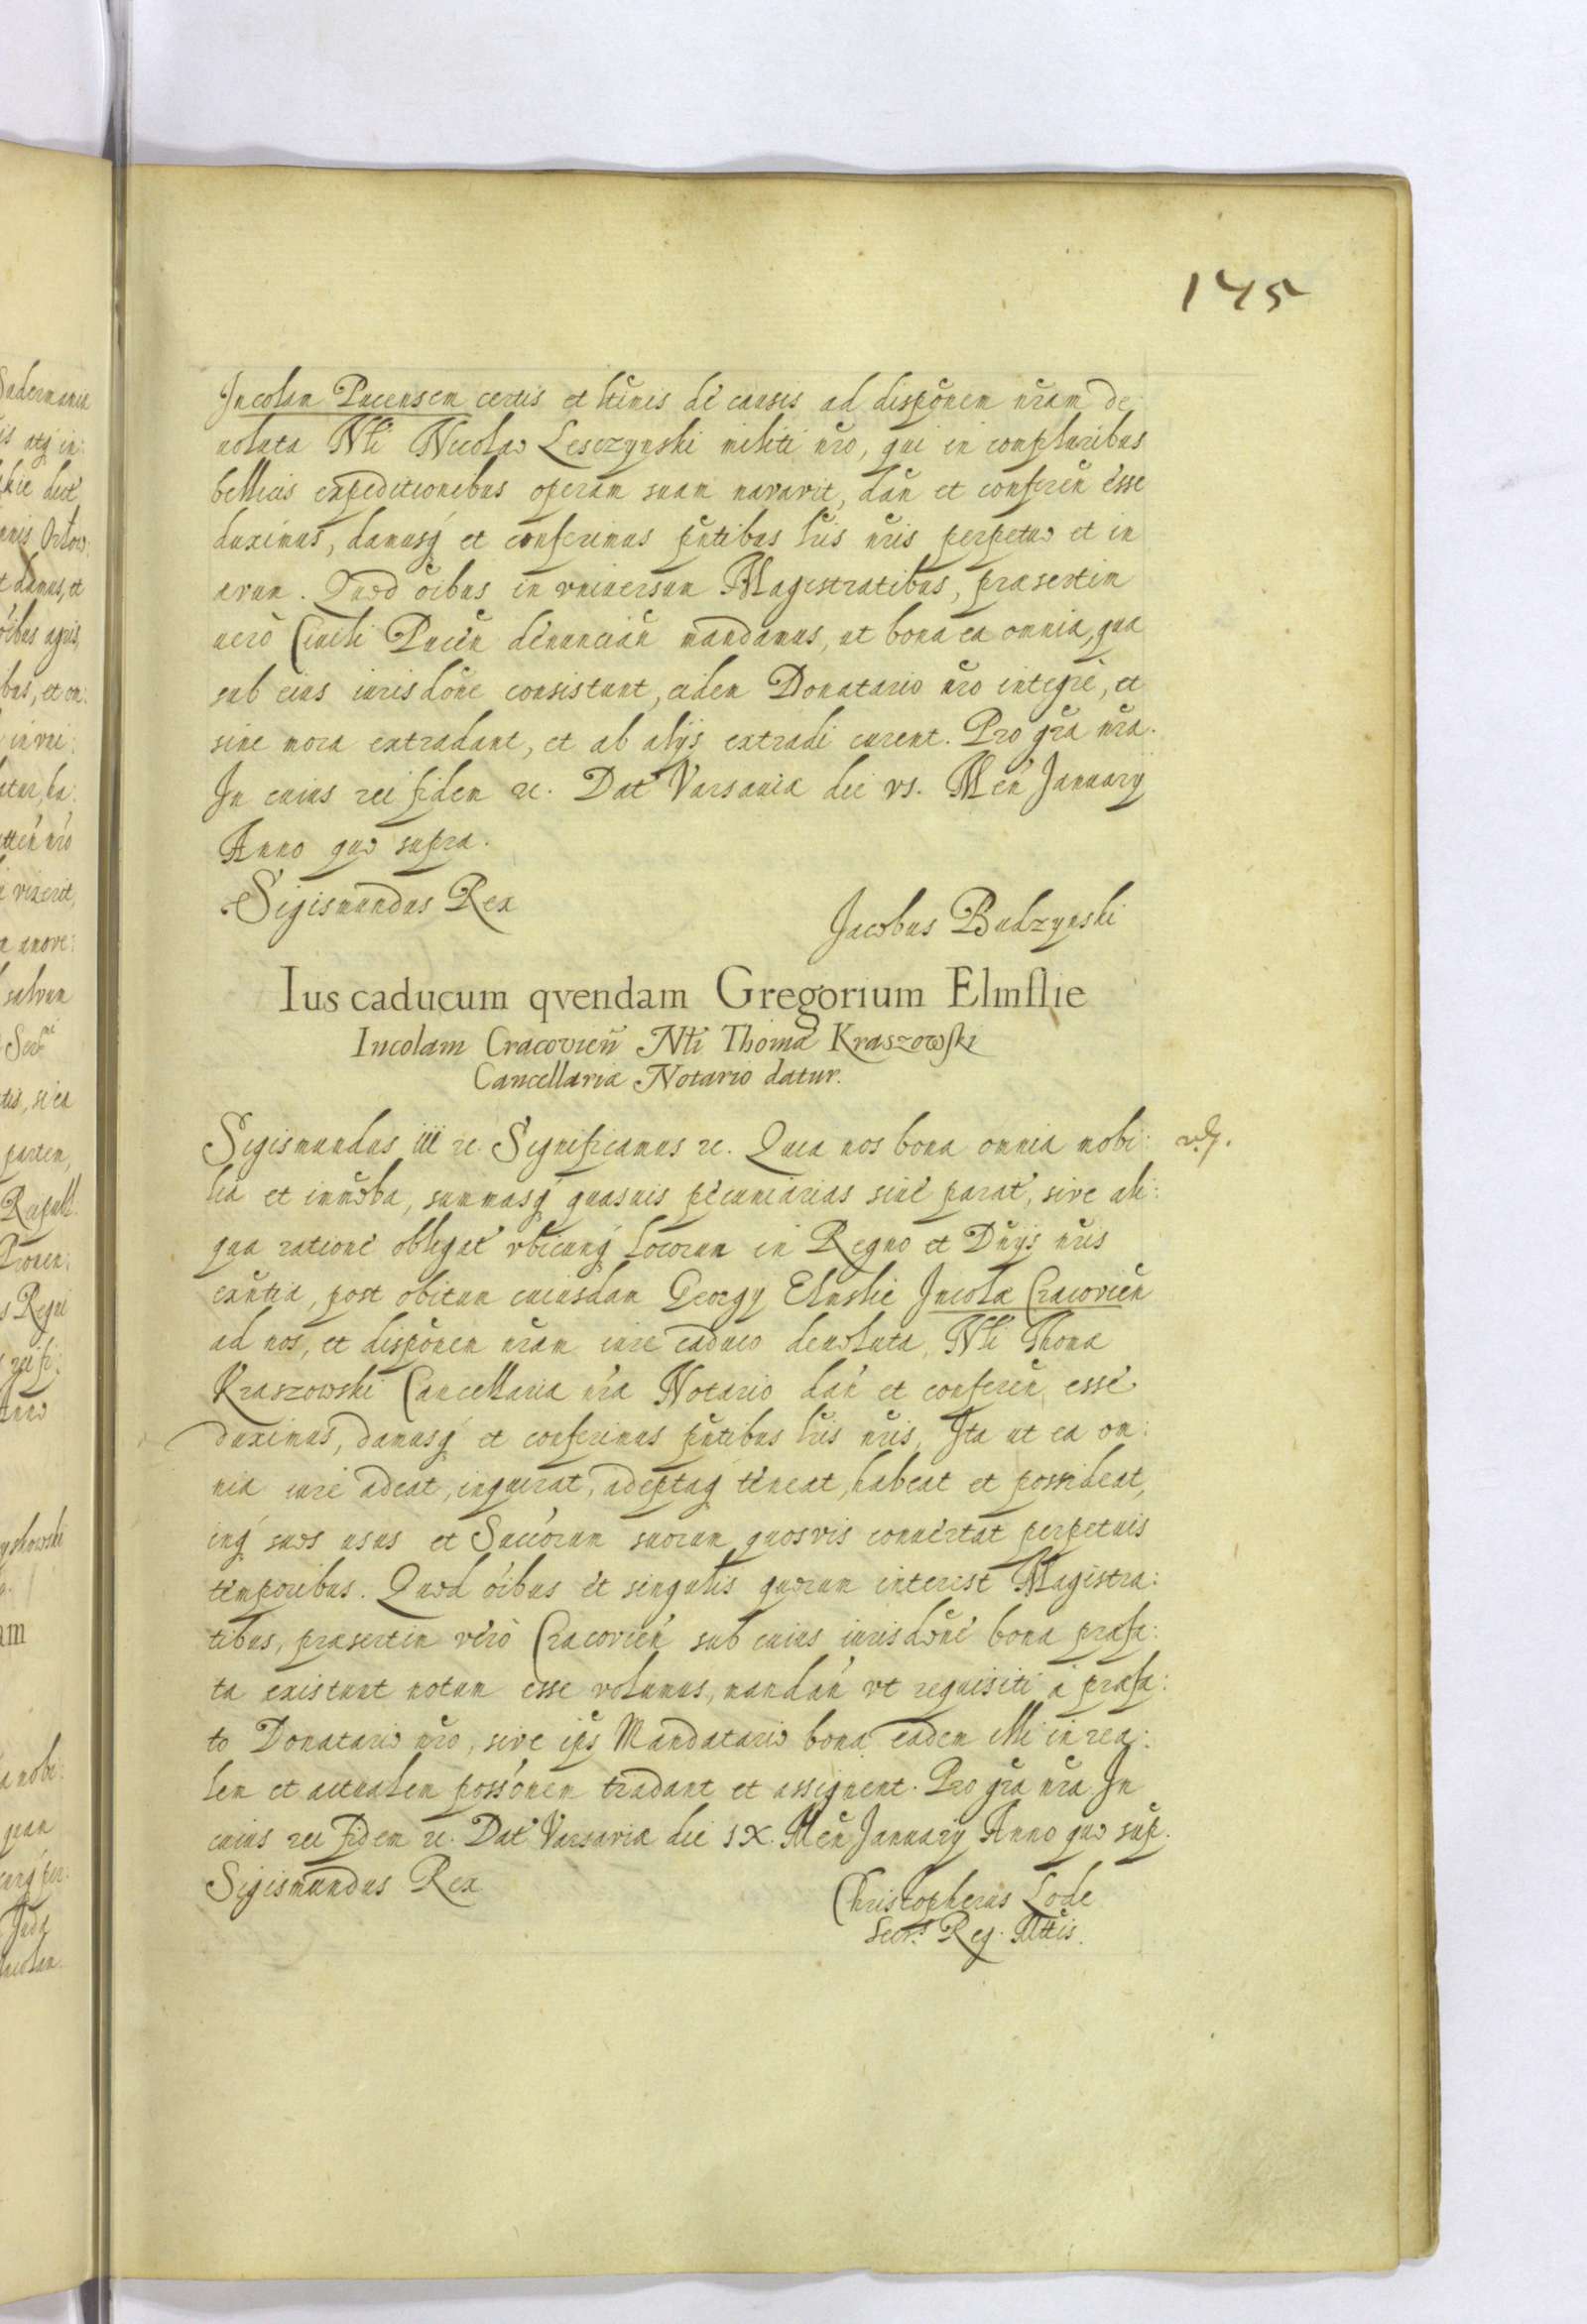 145
Incolam Pucensem certis et ltimis de causis ad disponem nram de:
uoluta Nli Nicolao Lesczynski militi nro, qui in compluribus
bellicis expeditionibus operam suam navavit, dan et conferen esse
duximus, damusq et conferimus pntibus lris nris perpetuo et in
avum. Quod oibus in vniuersum Magistratibus, præsertim
uero Ciuili Pucen denuncian mandamus, ut bona ea omnia, quæ
sub eius iurisdone consistunt, eidem Donatario nro integre, et
sine mora extradant, et ab alijs extradi curent. Pro gra nra.
In cuius rei fidem &c. Dat Varsauiæ die vs. Men January
Anno quo supra.
Sigismundus Rex
Jacobus Budzynski
Ius caducum qvendam Gregorium Elmslie
Incolam Cracovien Nli Thomæ Kraszowski
Cancellariæ Notario datur.
Sigismundus iii &c. Significamus &c. Quia nos bona omnia mobi:
lia et immoba, summasq quasuis pecuniarias siue parat, sive ali:
qua ratione obligat vbicunq locorum in Regno et Dnijs nris
exntia, post obitum cuiusdam Georgy Elmslie Incolæ Cracovien
ad nos, et disponem nram iure caduco deuoluta, Nli Thomæ
Kraszowski Cancellariæ nræ Notario dan et conferen esse
duximus, damusq et conferimus pntibus lris nris, Ita ut ea om:
nia iure adeat, inquirat, adeptaq teneat, habeat et possideat,
inq suos usus et Succorum suorum quosvis conuertat perpetuis
temporibus. Quod oibus et singulis quorum interest Magistra:
tibus, præsertim vero Cracovien sub cuius iurisdone bona præfa:
ta existunt notum esse volumus, mandan vt requisiti a præfa:
to Donatario nro, sive ips Mandatario bona eadem illi in rea:
lem et actualem possonem tradant et assignent. Pro gra nra In
cuius rei fidem &c. Dat Varsaviæ die ıx. Men January Anno quo sup.
Sigismundus Rex
Christopherus Lode
Secrs Reg. Mttis.